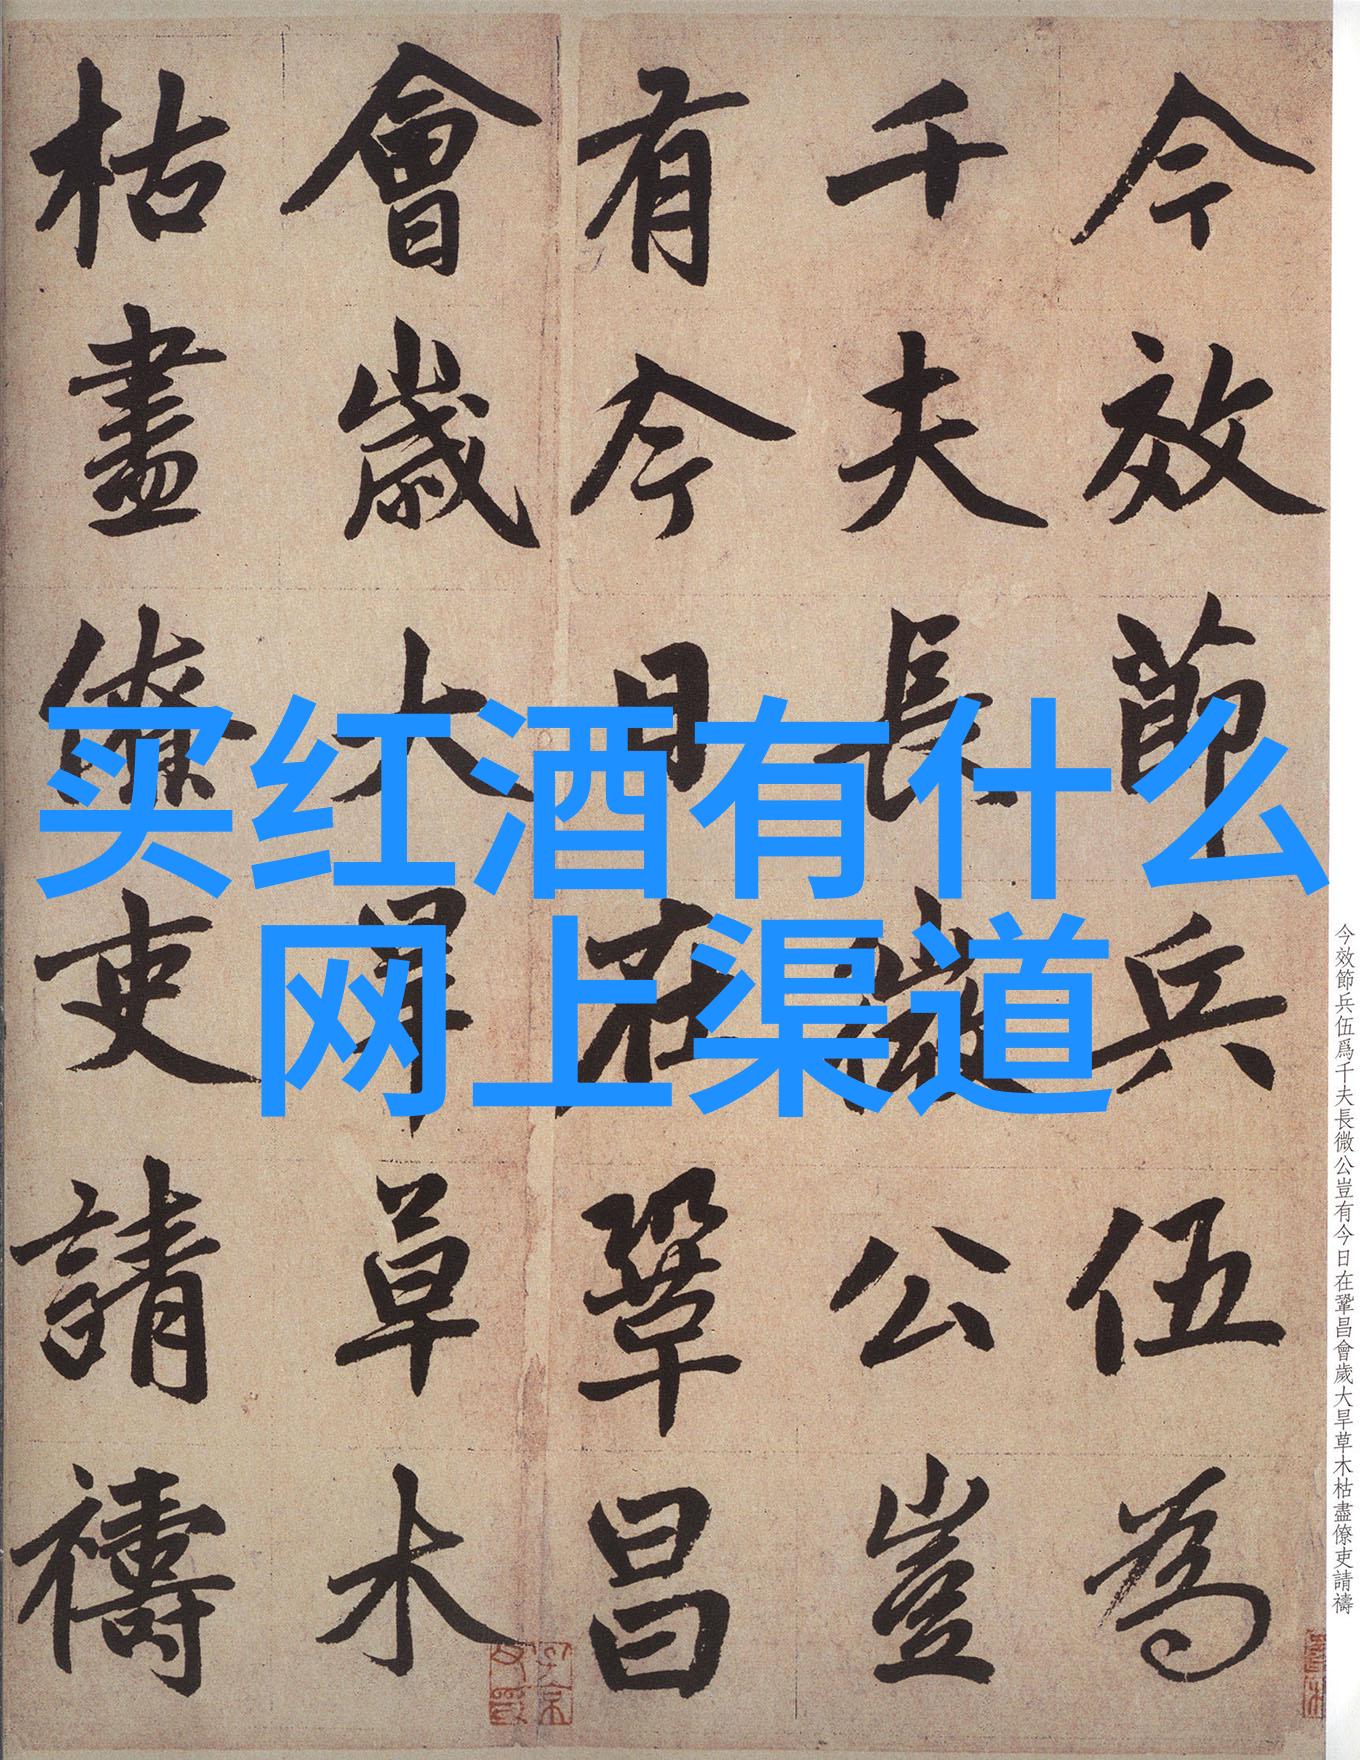 买红酒有什么
网上渠道
今效節兵伍為
千夫長微公豈
有今日在鞏昌
會歲大旱草木
枯盡僚吏請禱
今效節兵伍爲千夫長微公豈有今日在鞏昌會歲大旱草木枯盡僚吏請禱